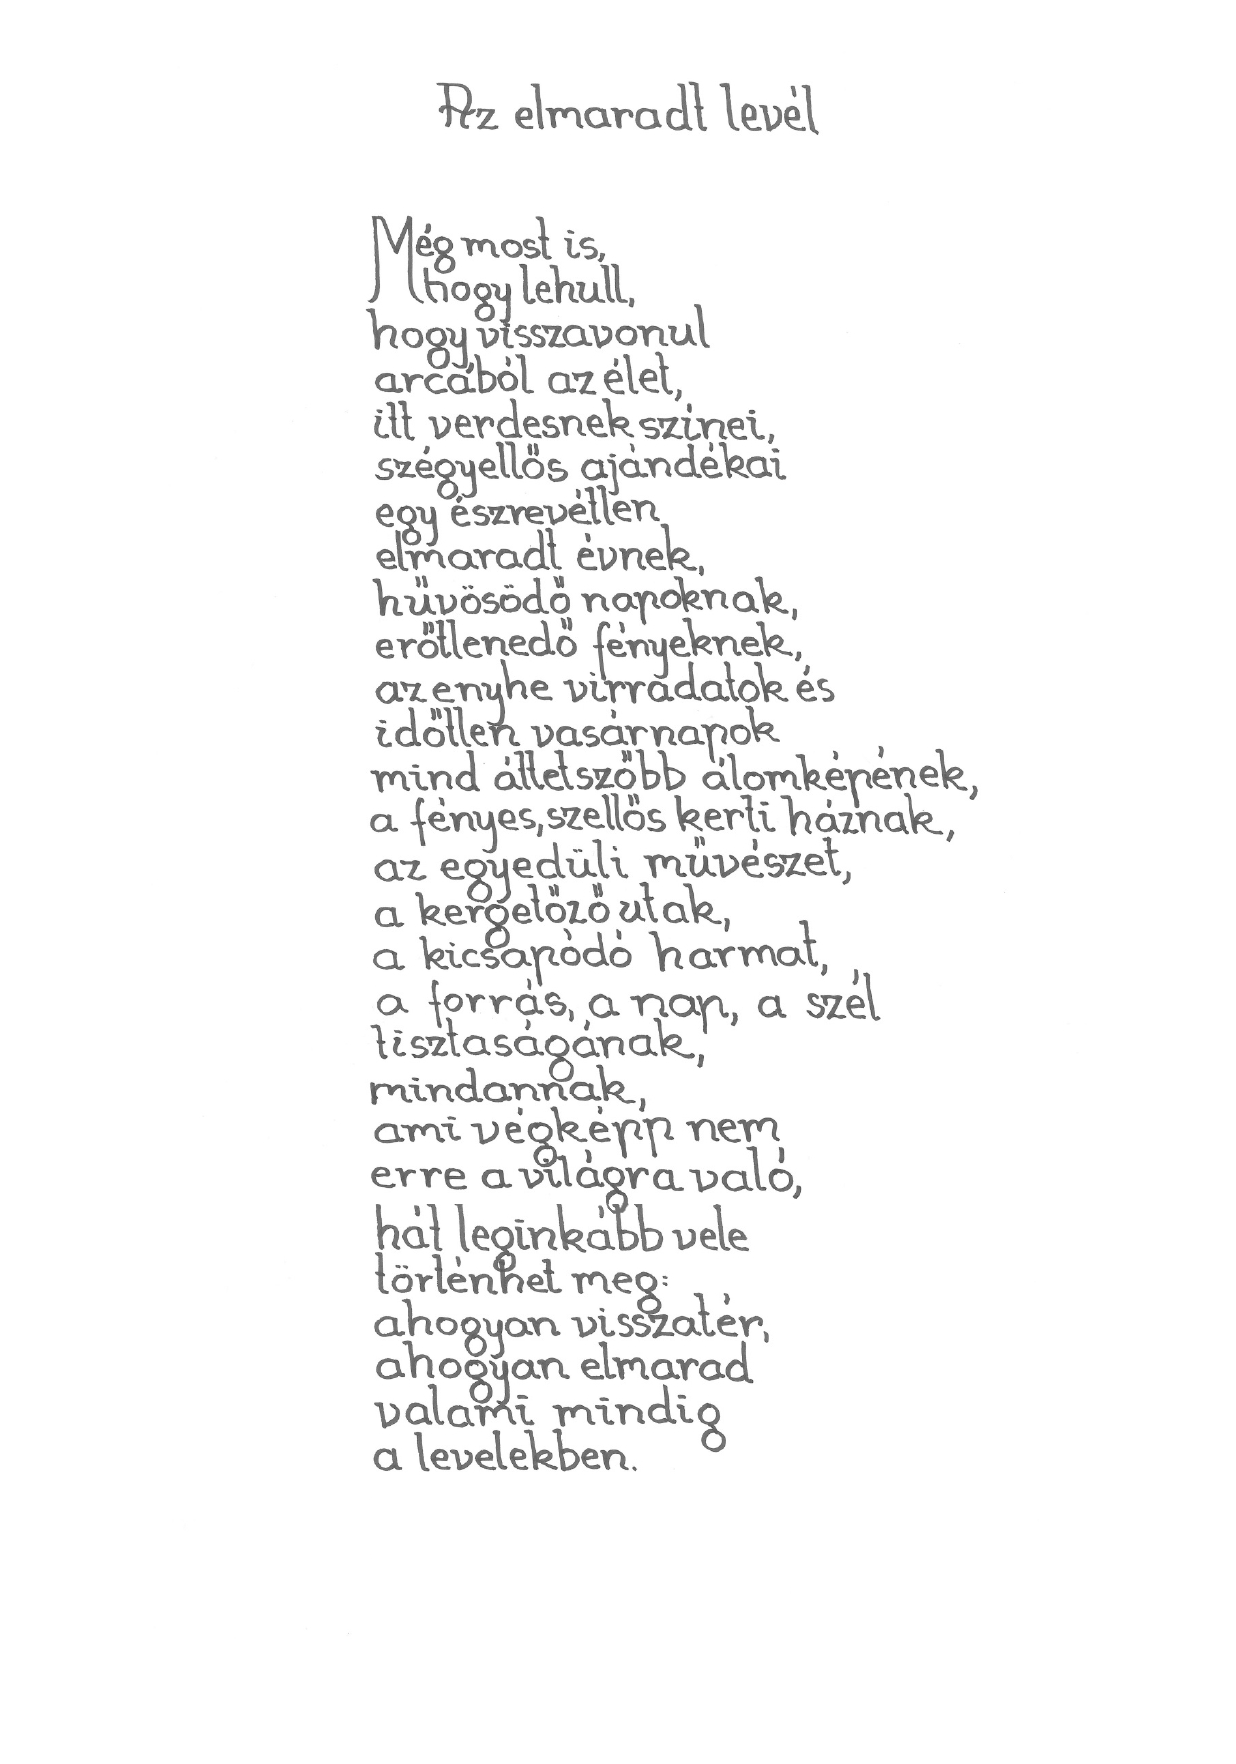 Az elmaradt levél
Még most is,
hogy lehull,
hogy visszavonul
arcából az élet,
itt verdesnek színei,
szégyellős ajándékai
egy észrevétlen
elmaradt évnek,
hűvösödő napoknak,
erőtlenedő fényeknek,
az enyhe virradatok és
időtlen vasárnapok
mind áttetszőbb álomképének,
a fényes, szellős kerti háznak,
az egyedüli művészet,
a kergetőző utak,
a kicsapódó harmat,
a forrás, a nap, a szél
tisztaságának,
mindannak,
ami végképp nem
erre a világra való,
hát leginkább vele
történhet meg:
ahogyan visszatér,
ahogyan elmarad
valami mindig
a levelekben.